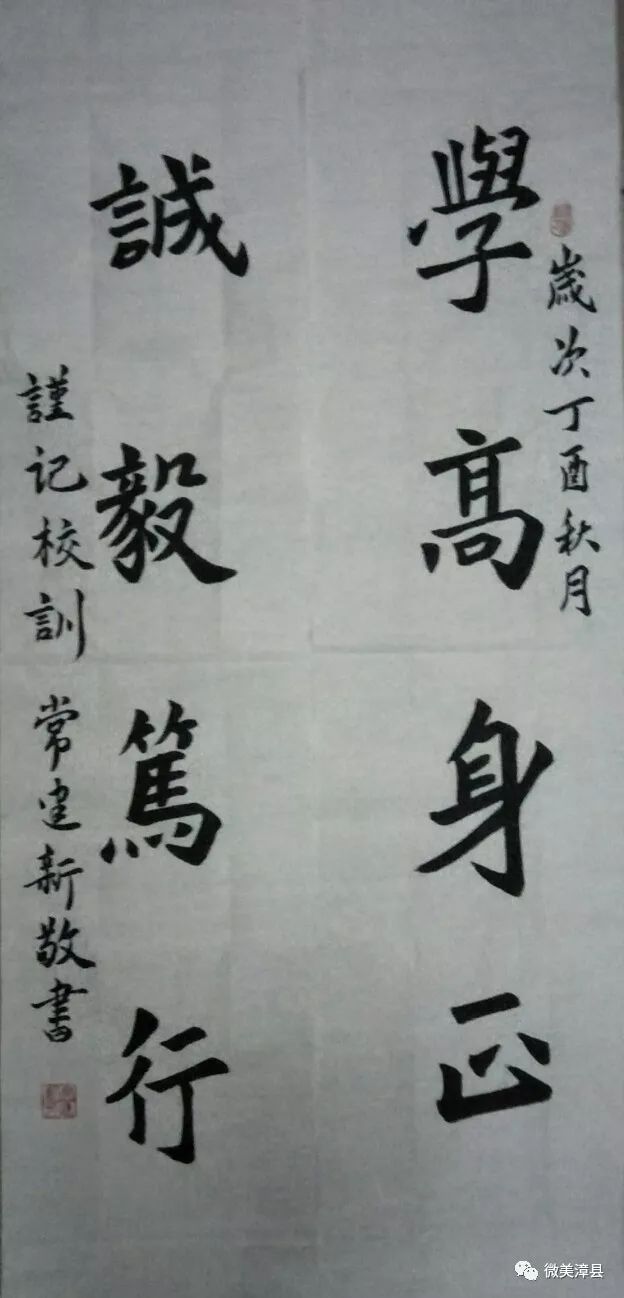 歲次丁酉秋月
學高身正
誠毅篤行
謹记校訓 常建新敬書
微美漳县